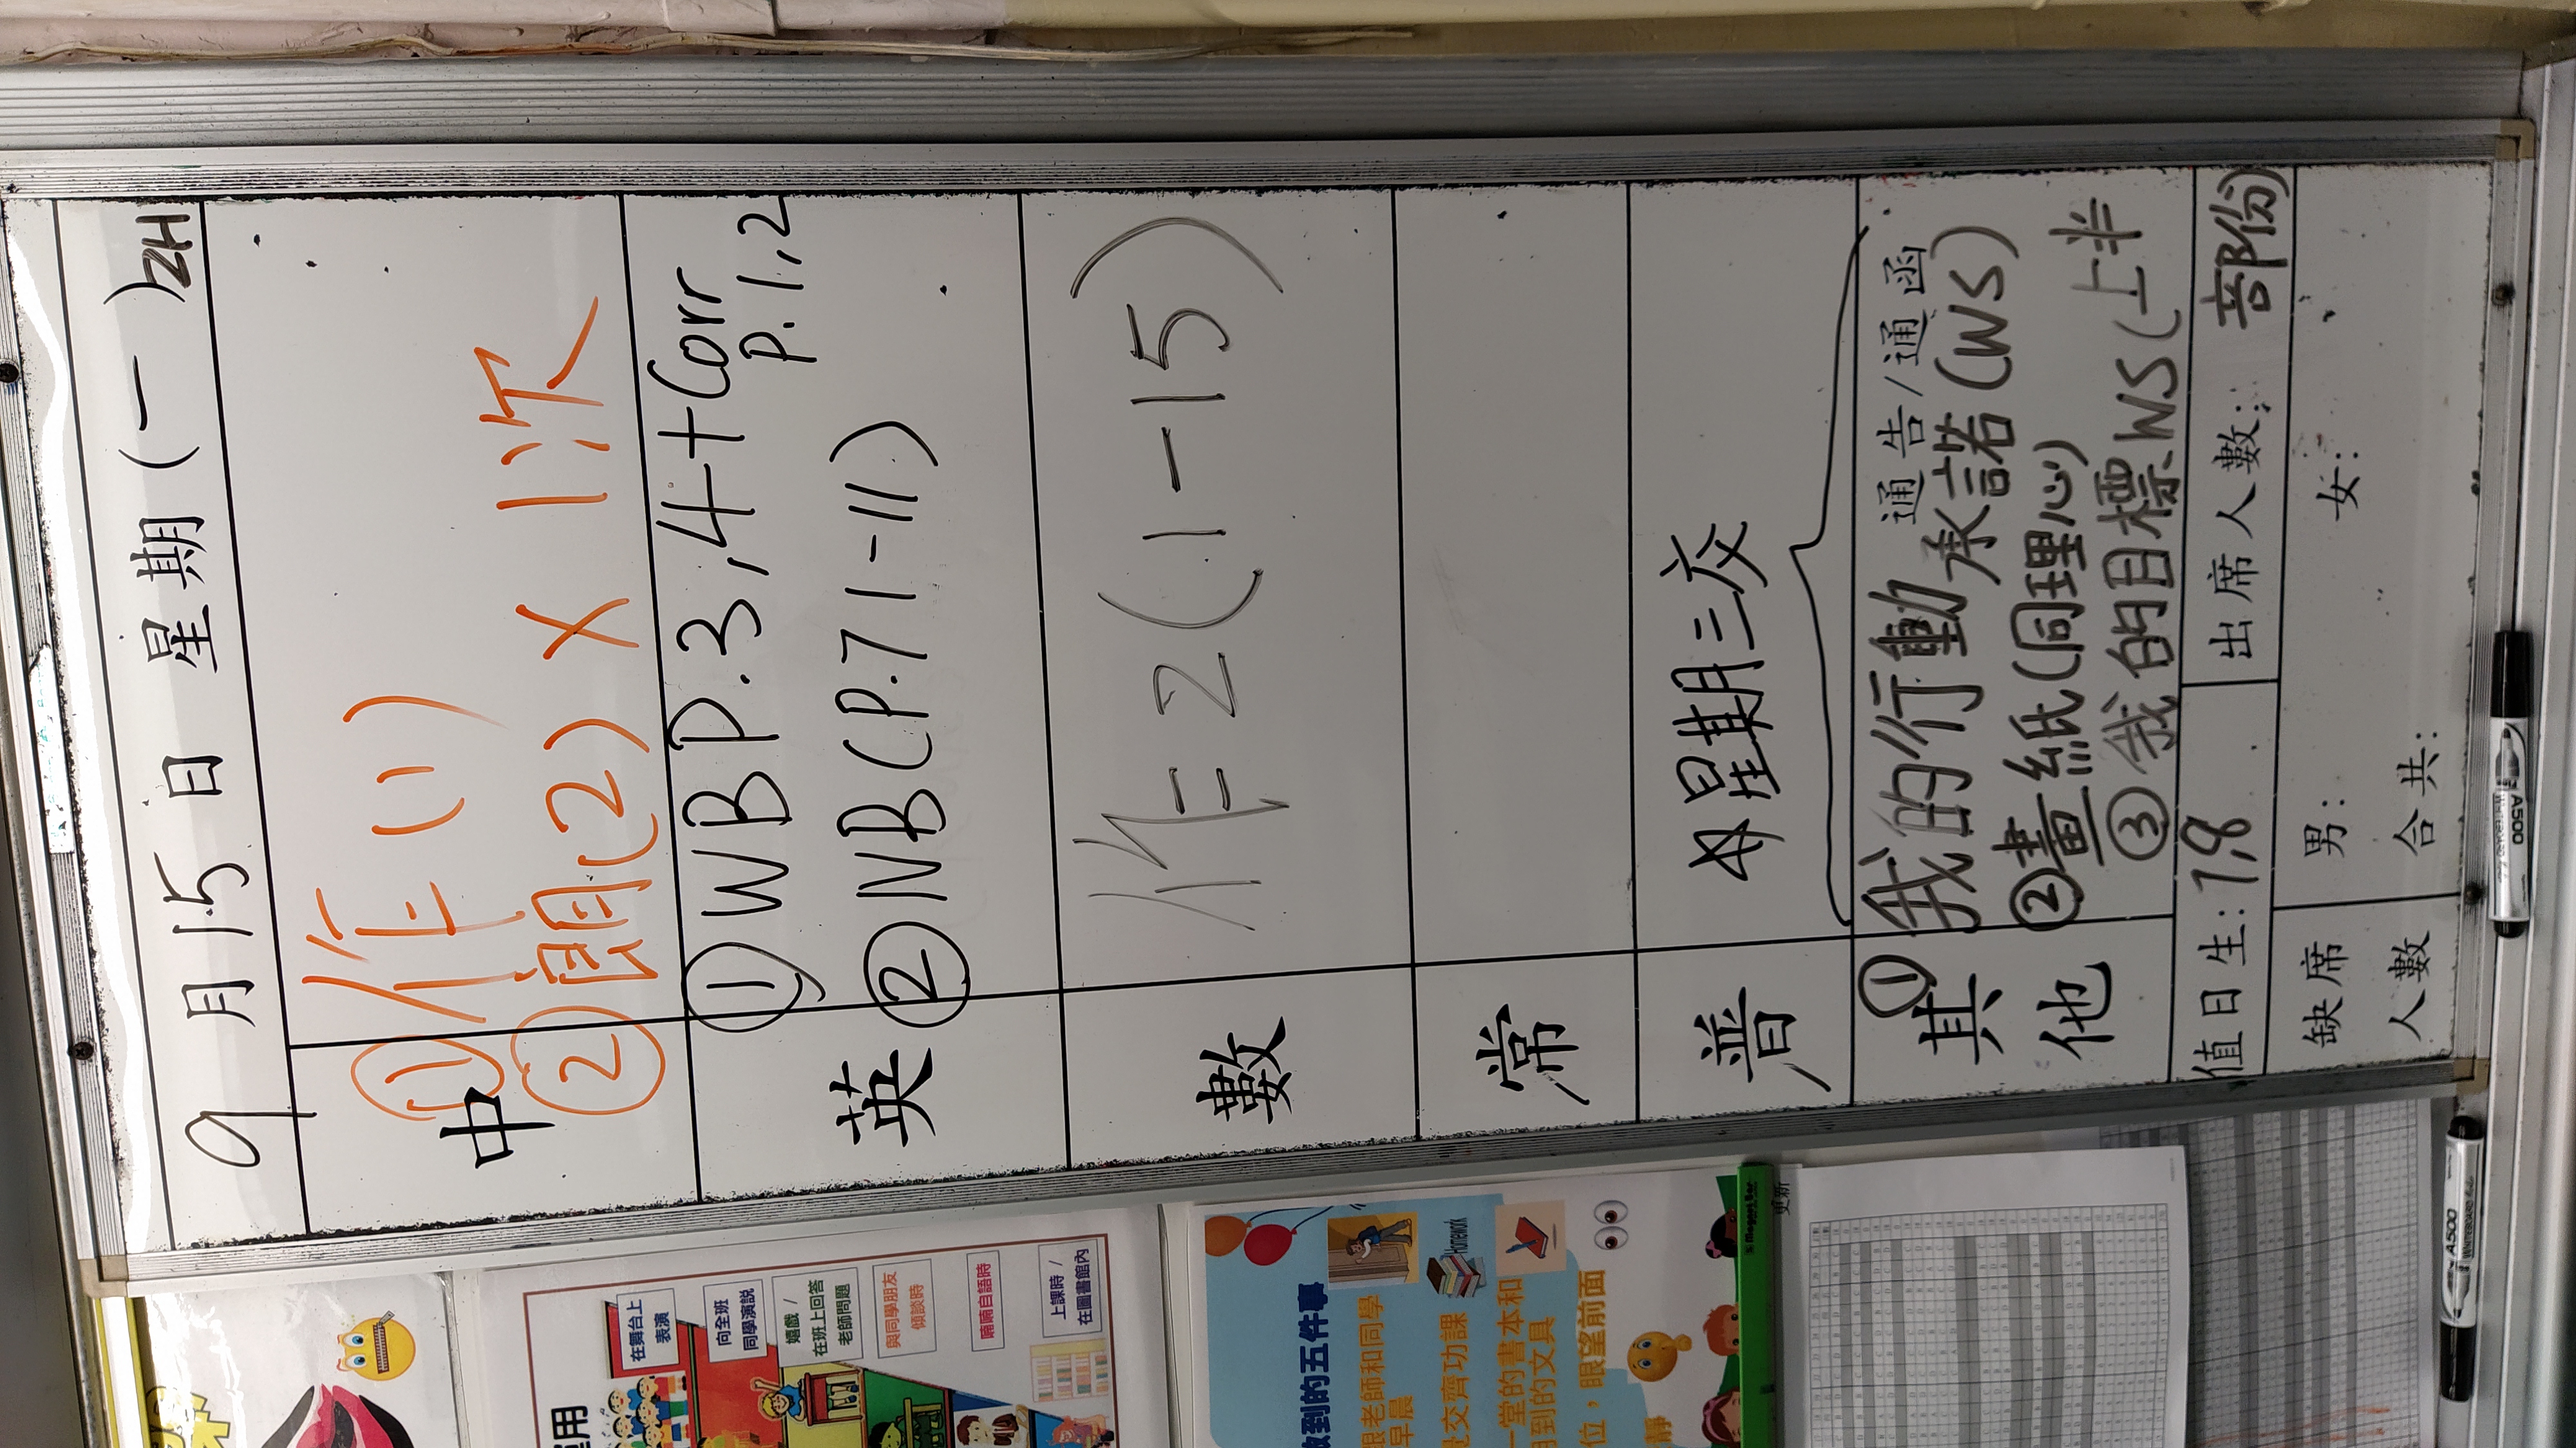 9月15日 星期(一)2H
中 ①作(1)
②詞(2) × 1次
英 ①WBP.3,4+Corr P.1,2
②NB(P.7 1-11)
數 作2(1-15)
常
普 星期三交
通告/通函
其他 ①我的行動承諾(WS)
②畫紙(同理心)
③我的目標WS(上半部份)
值日生:7,8 出席人數:
缺席人數 男: 女:
合共:
A500
A500
在舞台上
表演
向全班
同學演説
嬉戲/
在班上回答
老師問題
與同學朋友
傾談時
喃喃自語時
上課時/
在圖書館內
用
到的五件事
老師和同學
早晨
交齊功課
一堂的書本和
到的文具
位,眼望前面
靜
Homework
更新